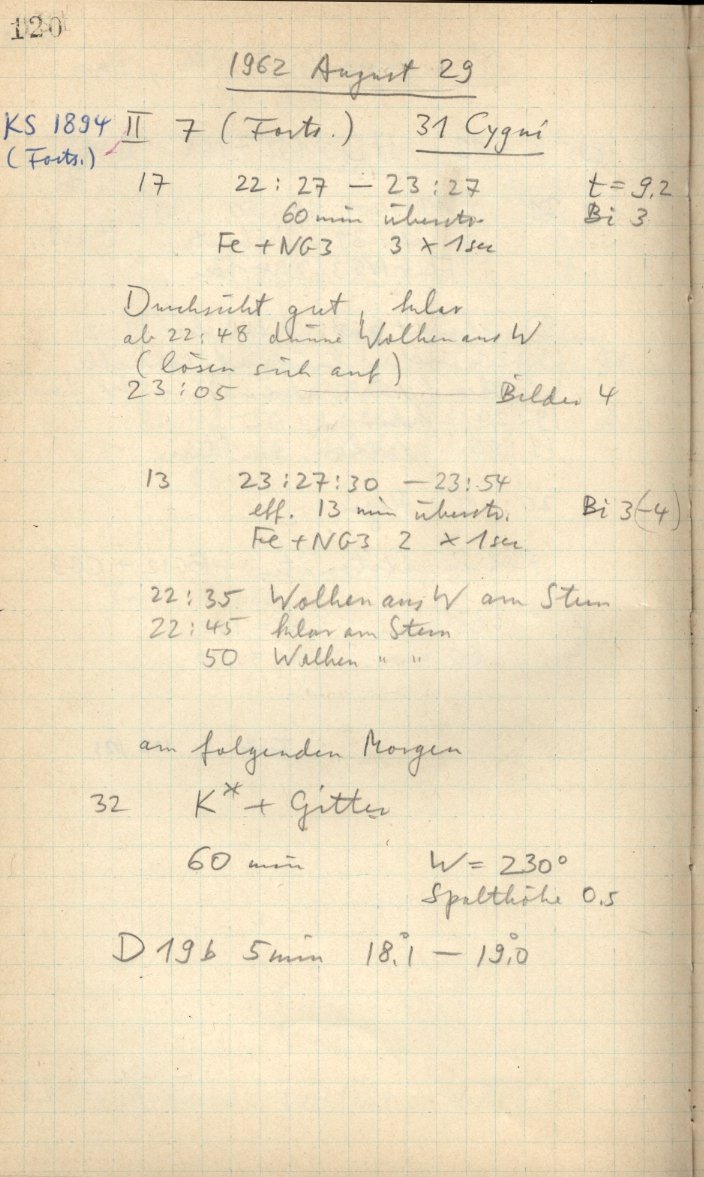 120
1962 August 29
KS 1894 II 7 (Forts.) 31 Cygni
(Forts.)
17 22:27 – 23:27 t = 9.2
60 min überstr. Bi 3
Fe + NG3 3 × 1 sec
Durchsicht gut, klar
ab 22:48 dünne Wolken aus W
(lösen sich auf)
23:05 — Bilder 4
13 23:27:30 – 23:54
eff. 13 min überstr. Bi 3(–4)
Fe + NG3 2 × 1 sec
22:35 Wolken aus W am Stern
22:45 klar am Stern
50 Wolken " "
am folgenden Morgen
32 K* + Gitter
60 min W = 230°
Spalthöhe 0.5
D 19b 5 min 18°.1 – 19°.0